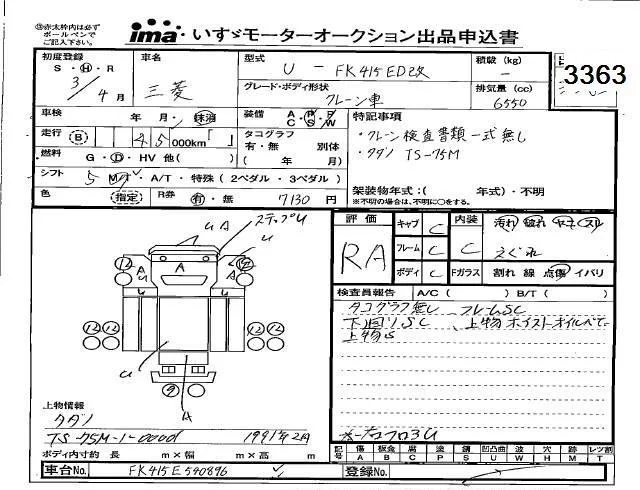 ㊟赤太枠内は必ず
ボールペンで
ご記入下さい。
ima・いすゞモーターオークション出品申込書
初度登録
S・H・R
3/4月
車名
三菱
型式
U - FK415ED改
積載(kg)
-
3363
グレード・ボディ形状
クレーン車
排気量(cc)
6550
車検
年 月/抹消
装備
A P P
C S W
特記事項
・クレーン検査書類一式無し
・タダノ TS-75M
走行
000km「 」
タコグラフ
有・無 別体
( 年 月)
燃料
G・D・HV 他( )
シフト
5 MT・A/T・特殊(2ペダル・3ペダル)
架装物年式:( 年式)・不明
※不明の場合は、不明に○をする。
色
(指定)
R券
有・無
7130円
評価
RA
キャブ C
フレーム C
ボディ C
内装
C
Fガラス
汚れ 破れ ヤニ スレ
えぐれ
割れ 線 点傷 イバリ
検査員報告
A/C( ) B/T( )
タコグラフ無し フレームSC
下回りSC
上物S
ステップU
U A
U
A
12
上物情報
タダノ
TS-75M-1-0000
1991年2月
ボディ内寸約 長 m×幅 m×高 m
記号
傷 A
板金 B
腐 C
塗 P
錆 S
凹凸曲 U
波 W
穴 H
跡 M
レツ割 T
車台No.
FK415E540896
登録No.